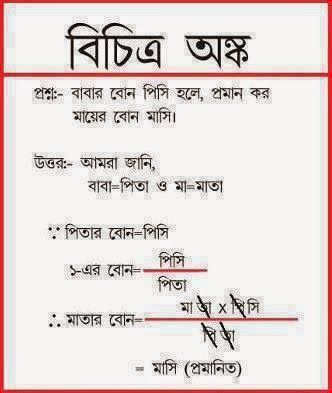 বিচিত্র অঙ্ক
প্রশ্ন:- বাবার বোন পিসি হলে, প্রমান কর
মায়ের বোন মাসি।
উত্তর:- আমরা জানি,
বাবা=পিতা ও মা=মাতা
∵ পিতার বোন=পিসি
১-এর বোন= পিসি
পিতা
∴ মাতার বোন= মা তা x পি সি
পি তা
= মাসি (প্রমানিত)